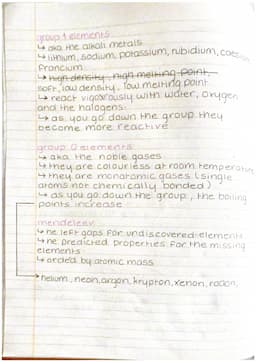 group 1 elements
↳ aka the alkali metals
↳ lithium, sodium, potassium, rubidium, caesium
francium
↳ high density, high melting point,
soft, low density, low melting point
↳ react vigorously with water, oxygen
and the halogens.
↳ as you go down the group they
become more reactive
group 0 elements
↳ aka the noble gases
↳ they are colourless at room temperature
↳ they are monatomic gases (single
atoms not chemically bonded)
↳ as you go down the group, the boiling
points increase
mendeleev
↳ he left gaps for undiscovered elements
↳ he predicted properties for the missing
elements
↳ orded by atomic mass
helium, neon, argon, krypton, xenon, radon,